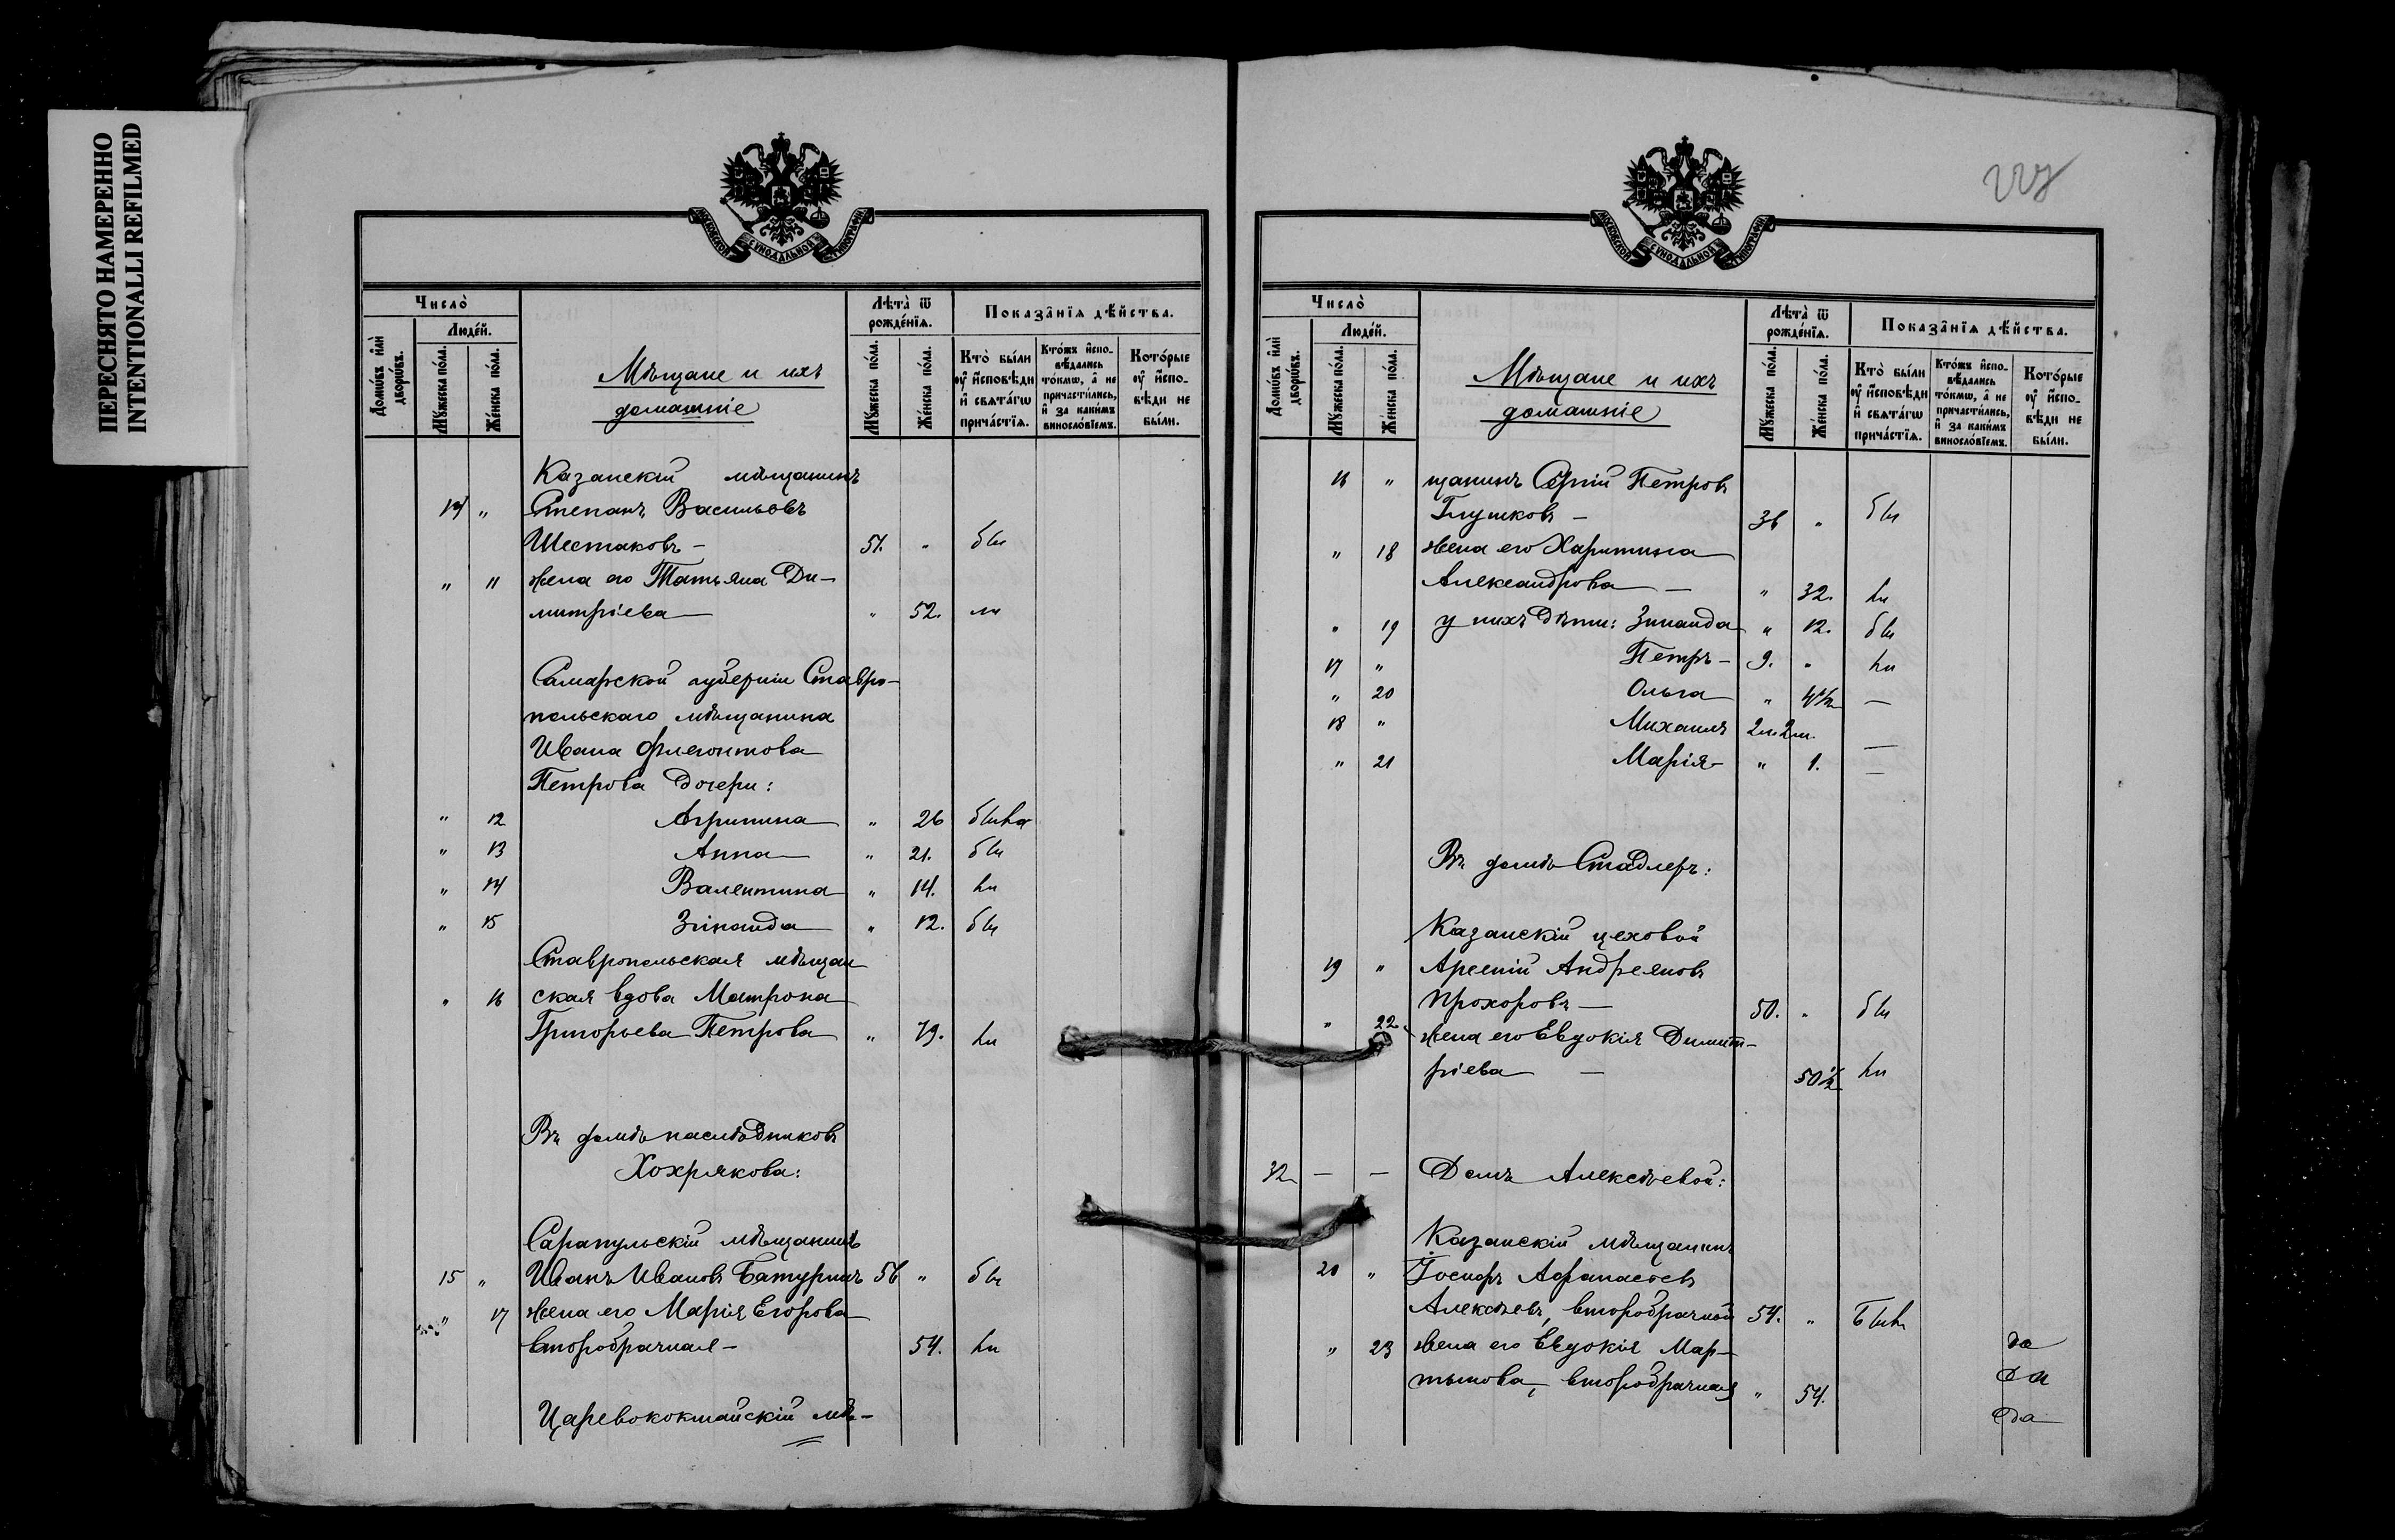 ПЕРЕСНЯТО НАМЕРЕННО
INTENTIONALLI REFILMED
МОСКОВСКОЙ СѴНОДАЛЬНОЙ ТИПОГРАФІИ
Число̀
Люде́й.
Домѡ́въ и҆лѝ дворѡ́въ.
Мꙋ́жеска по́ла.
Же́нска по́ла.
Мѣщане и ихъ
домашніе
Лѣта̀ ѿ рожде́нїѧ.
Мꙋ́жеска по́ла.
Же́нска по́ла.
Показа̑нїѧ дѣ́йства.
Кто̀ бы́ли ᲂу҆ и҆сповѣ́ди и҆ свѧта́гѡ прича́стїѧ.
Кто́жъ и҆сповѣ́дались то́кмѡ, а҆ не причасти́лись, и҆ за каки́мъ виносло́вїемъ.
Кото́рые ᲂу҆ и҆сповѣ́ди не бы́ли.
Казанскій мѣщанинъ
14 " Степанъ Васильевъ
Шестаковъ – 51. " бы
" 11 жена его Татьяна Ди-
митріева — " 52. ли
Самарской губерніи Ставро-
польскаго мѣщанина
Ивана Флегонтова
Петрова дочери:
" 12 Агрипина " 26 были
" 13 Анна — " 21. бы
" 14 Валентина " 14. ли
" 15 Зинаида " 12. бы
Ставропольская мѣщан
" 16 ская вдова Матрона
Григорьева Петрова " 79. ли
Въ домѣ наслѣдниковъ
Хохрякова:
Сарапульскій мѣщанинъ
15 " Иванъ Ивановъ Батуринъ 56 " бы
" 17 жена его Марія Егорова
второбрачная – 54. ли
Царевококшайскій мѣ-
МОСКОВСКОЙ СѴНОДАЛЬНОЙ ТИПОГРАФІИ
Число̀
Люде́й.
Домѡ́въ и҆лѝ дворѡ́въ.
Мꙋ́жеска по́ла.
Же́нска по́ла.
Мѣщане и ихъ
домашніе
Лѣта̀ ѿ рожде́нїѧ.
Мꙋ́жеска по́ла.
Же́нска по́ла.
Показа̑нїѧ дѣ́йства.
Кто̀ бы́ли ᲂу҆ и҆сповѣ́ди и҆ свѧта́гѡ прича́стїѧ.
Кто́жъ и҆сповѣ́дались то́кмѡ, а҆ не причасти́лись, и҆ за каки́мъ виносло́вїемъ.
Кото́рые ᲂу҆ и҆сповѣ́ди не бы́ли.
16 " щанинъ Сергій Петровъ
Глушковъ – 36 " бы
" 18 жена его Харитина
Александрова — " 32. ли
" 19 у нихъ дѣти: Зинаида " 12. бы
17 " Петръ – 9. " ли
" 20 Ольга " 4½ —
18 " Михаилъ 2м. —
" 21 Марія – " 1. —
Въ домѣ Стадлеръ:
Казанскій цеховой
19 " Арсеній Андреяновъ
Прохоровъ — 50. " бы
" 22 жена его Евдокія Димит-
ріева — 50½ ли
32 – – Домъ Алексѣевой:
Казанскій мѣщанинъ
20 " Іосифъ Афанасьевъ
Алексѣевъ, второбрачной 54. " Были
" 23 жена его Евдокія Мар-
тынова, второбрачная " 54.
да
да
да